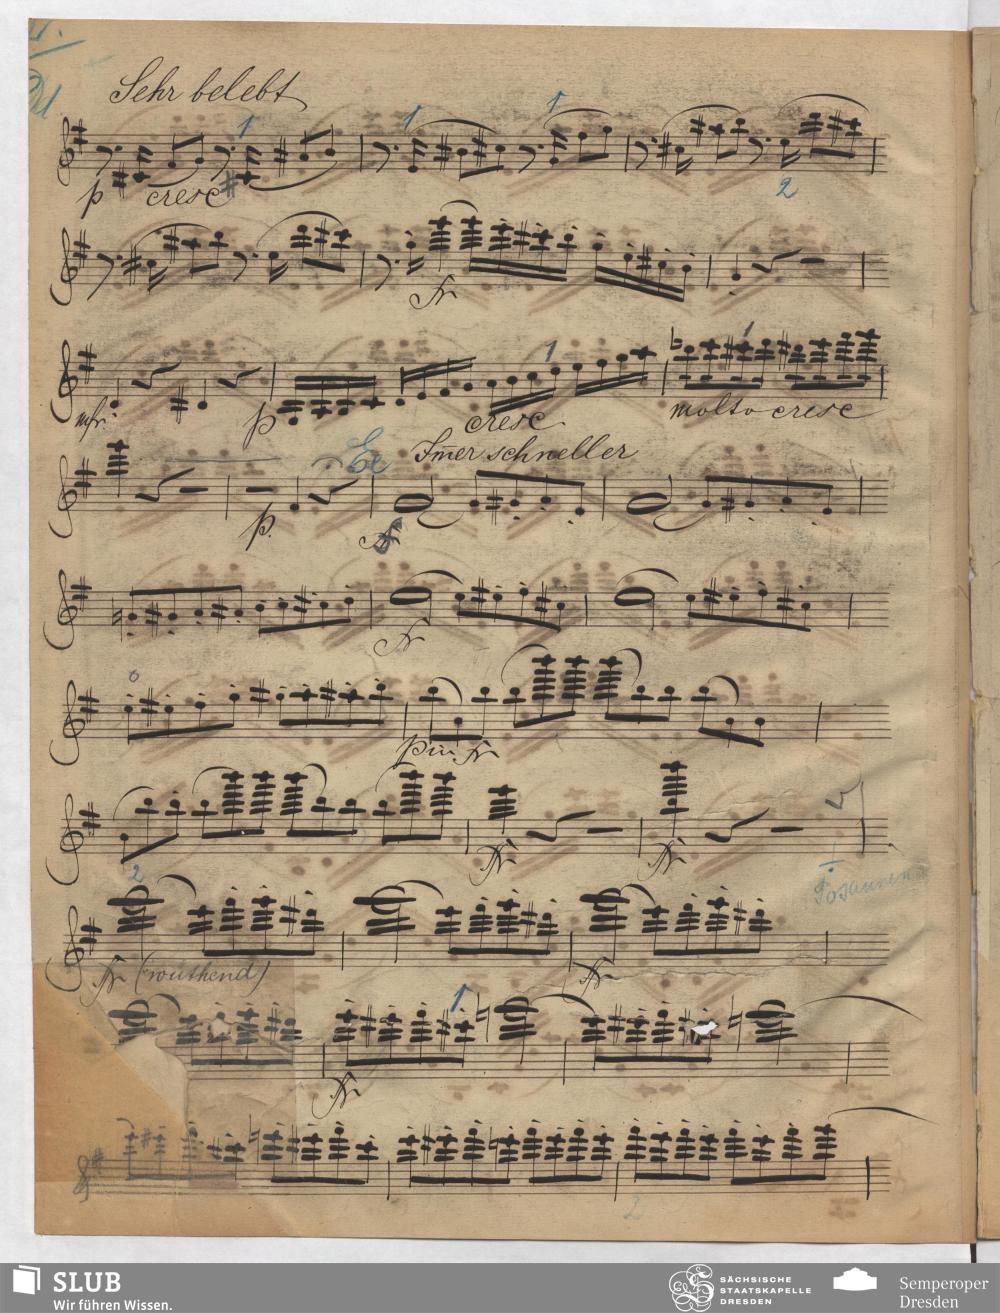 Sehr belebt
1 1 1
p cresc 2
fr
1 1
mfr. p cresc molto cresc
Immer schneller
p.
fr
fr
0
piu fr
fr fr
2
Posaunen
fr (wüthend) fr
1
fr
2
SLUB
Wir führen Wissen.
SÄCHSISCHE
STAATSKAPELLE
DRESDEN
Semperoper
Dresden